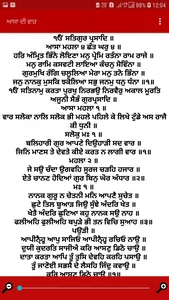 12:04
ਆਸਾ ਦੀ ਵਾਰ
ੴ ਸਤਿਗੁਰ ਪ੍ਰਸਾਦਿ ॥
ਆਸਾ ਮਹਲਾ ੪ ਛੰਤ ਘਰੁ ੪ ॥
ਹਰਿ ਅੰਮ੍ਰਿਤ ਭਿੰਨੇ ਲੋਇਣਾ ਮਨੁ ਪ੍ਰੇਮਿ ਰਤੰਨਾ ਰਾਮ ਰਾਜੇ ॥
ਮਨੁ ਰਾਮਿ ਕਸਵਟੀ ਲਾਇਆ ਕੰਚਨੁ ਸੋਵਿੰਨਾ ॥
ਗੁਰਮੁਖਿ ਰੰਗਿ ਚਲੂਲਿਆ ਮੇਰਾ ਮਨੁ ਤਨੋ ਭਿੰਨਾ ॥
ਜਨੁ ਨਾਨਕੁ ਮੁਸਕਿ ਝਕੋਲਿਆ ਸਭੁ ਜਨਮੁ ਧਨੁ ਧੰਨਾ ॥੧॥
ੴ ਸਤਿਨਾਮੁ ਕਰਤਾ ਪੁਰਖੁ ਨਿਰਭਉ ਨਿਰਵੈਰੁ ਅਕਾਲ ਮੂਰਤਿ
ਅਜੂਨੀ ਸੈਭੰ ਗੁਰਪ੍ਰਸਾਦਿ ॥
ਆਸਾ ਮਹਲਾ ੧ ॥
ਵਾਰ ਸਲੋਕਾ ਨਾਲਿ ਸਲੋਕ ਭੀ ਮਹਲੇ ਪਹਿਲੇ ਕੇ ਲਿਖੇ ਟੁੰਡੇ ਅਸ ਰਾਜੈ
ਕੀ ਧੁਨੀ ॥
ਸਲੋਕੁ ਮਃ ੧ ॥
ਬਲਿਹਾਰੀ ਗੁਰ ਆਪਣੇ ਦਿਉਹਾੜੀ ਸਦ ਵਾਰ ॥
ਜਿਨਿ ਮਾਣਸ ਤੇ ਦੇਵਤੇ ਕੀਏ ਕਰਤ ਨ ਲਾਗੀ ਵਾਰ ॥੧॥
ਮਹਲਾ ੨ ॥
ਜੇ ਸਉ ਚੰਦਾ ਉਗਵਹਿ ਸੂਰਜ ਚੜਹਿ ਹਜਾਰ ॥
ਏਤੇ ਚਾਨਣ ਹੋਦਿਆਂ ਗੁਰ ਬਿਨੁ ਘੋਰ ਅੰਧਾਰ ॥੨॥
ਮਃ ੧ ॥
ਨਾਨਕ ਗੁਰੂ ਨ ਚੇਤਨੀ ਮਨਿ ਆਪਣੈ ਸੁਚੇਤ ॥
ਛੁਟੇ ਤਿਲ ਬੂਆੜ ਜਿਉ ਸੁੰਞੇ ਅੰਦਰਿ ਖੇਤ ॥
ਖੇਤੈ ਅੰਦਰਿ ਛੁਟਿਆ ਕਹੁ ਨਾਨਕ ਸਉ ਨਾਹ ॥
ਫਲੀਅਹਿ ਫੁਲੀਅਹਿ ਬਪੁੜੇ ਭੀ ਤਨ ਵਿਚਿ ਸੁਆਹ ॥੩॥
ਪਉੜੀ ॥
ਆਪੀਨ੍ਹੈ ਆਪੁ ਸਾਜਿਓ ਆਪੀਨ੍ਹੈ ਰਚਿਓ ਨਾਉ ॥
ਦੁਯੀ ਕੁਦਰਤਿ ਸਾਜੀਐ ਕਰਿ ਆਸਣੁ ਡਿਠੋ ਚਾਉ ॥
ਦਾਤਾ ਕਰਤਾ ਆਪਿ ਤੂੰ ਤੁਸਿ ਦੇਵਹਿ ਕਰਹਿ ਪਸਾਉ ॥
ਤੂੰ ਜਾਣੋਈ ਸਭਸੈ ਦੇ ਲੈਸਹਿ ਜਿੰਦੁ ਕਵਾਉ ॥
ਕਰਿ ਆਸਣੁ ਡਿਠੋ ਚਾਉ ॥੧॥